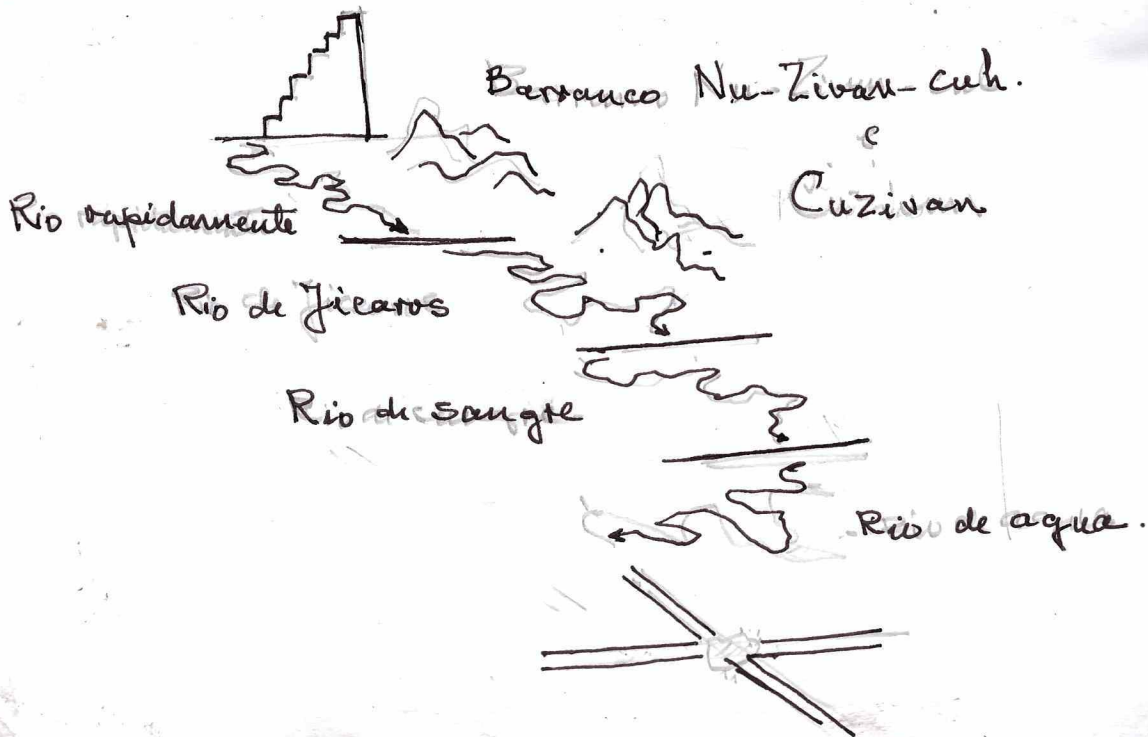 Barranco Nu-Zivan-cuh.
c
Cuzivan
Rio rapidamente
Rio de Jicaros
Rio de sangre
Rio de agua.